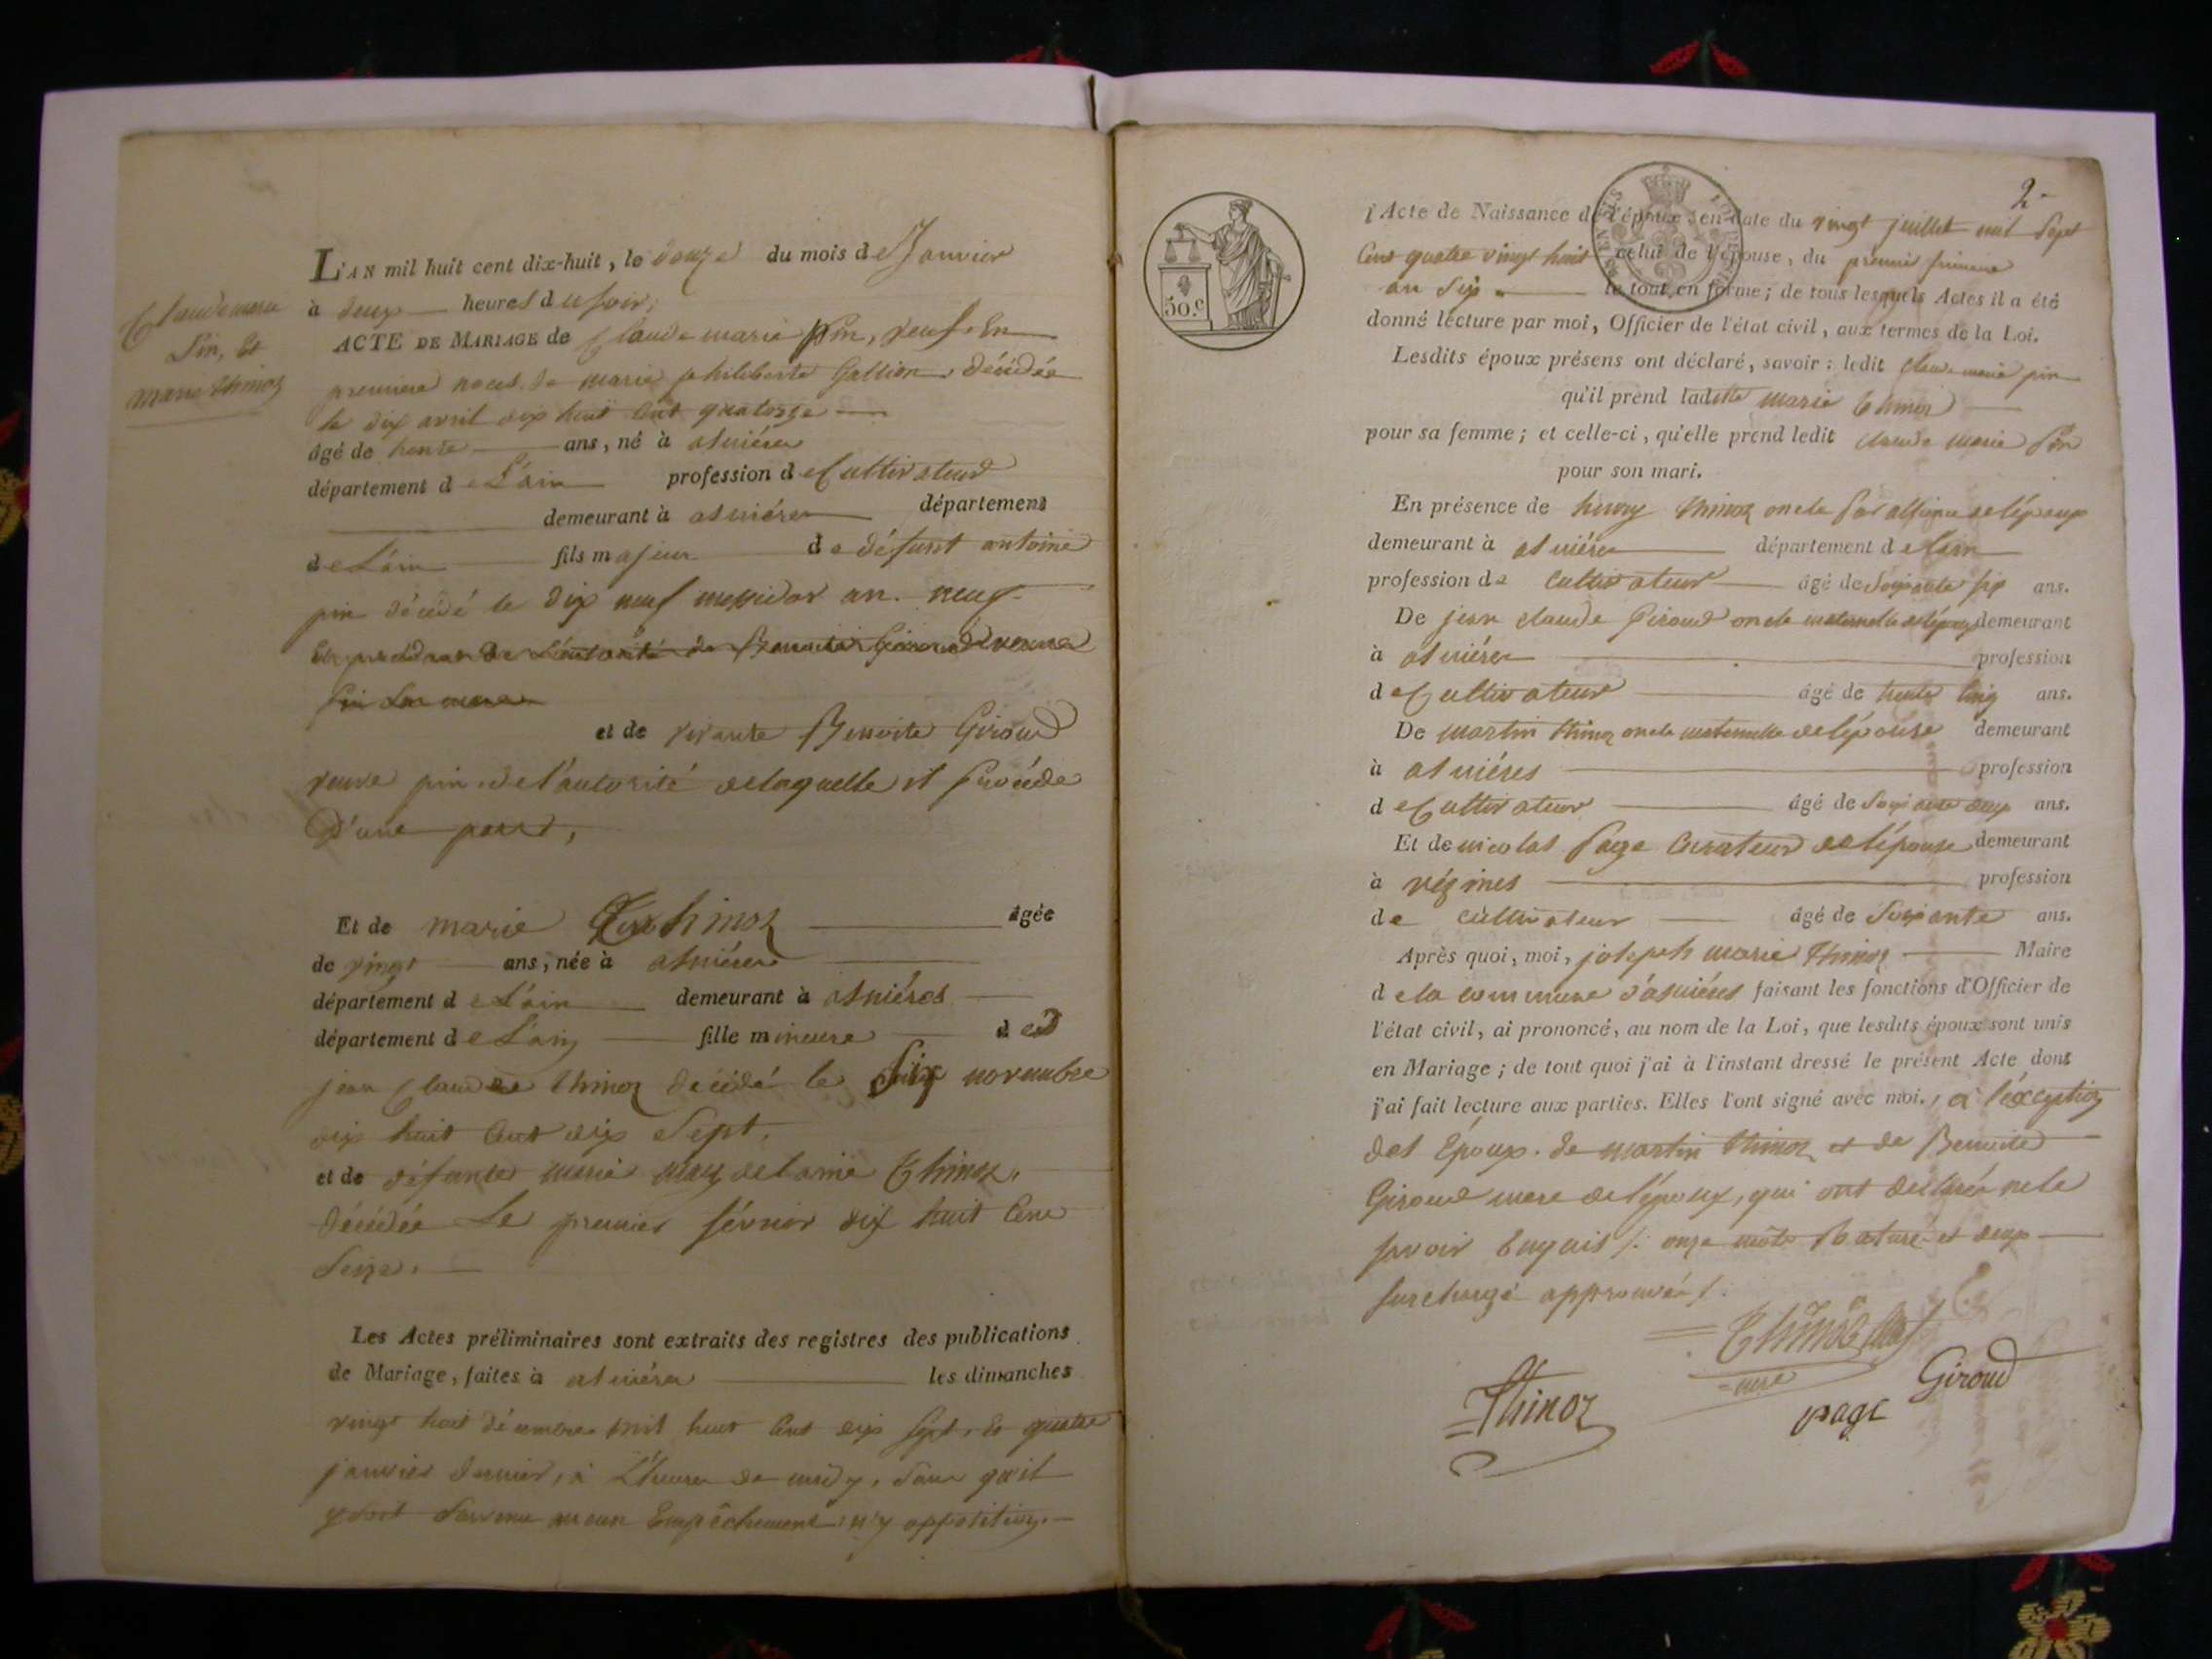 Claude marie
Pin, Et
marie thinoz
L'AN mil huit cent dix-huit, le douze du mois de Janvier
à deux heures du soir;
ACTE DE MARIAGE de Claude marie Pin, veuf En
premiere noces de marie philiberte Gallion, décédée
le dix avril dix huit cent quatorze
âgé de trente ans, né à asniéres
département de L'ain profession de Cultivateur
demeurant à asniéres département
de L'ain fils majeur de défunt antoine
pin décédé le dix neuf messidor an neuf
de L'autorité de Benoite Giroud veuve
Pin sa mere
et de vivante Benoite Giroud
veuve pin de l'autorité de laquelle il procéde
D'une part,
Et de marie thinoz âgée
de vingt ans, née à asniéres
département de L'ain demeurant à asniéres
département de L'ain fille mineure de
jean Claude thinoz décédé le six novembre
dix huit cent dix sept,
et de défunte marie magdelaine Thinoz,
décédée Le premier février dix huit cent
Seize.
Les Actes préliminaires sont extraits des registres des publications
de Mariage, faites à asniéres les dimanches
vingt huit décembre mil huit cent dix sept, et quatre
janvier dernier, à L'heure de midy, sans qu'il
y soit survenu aucun Empêchement n'y opposition.
2
50.c
l'Acte de Naissance de l'époux, en date du vingt juillet mil sept
Cent quatre vingt huit celui de l'épouse, du premier frimaire
an Six le tout en forme; de tous lesquels Actes il a été
donné lecture par moi, Officier de l'état civil, aux termes de la Loi.
Lesdits époux présens ont déclaré, savoir: ledit claude marie pin
qu'il prend ladite marie thinoz
pour sa femme; et celle-ci, qu'elle prend ledit claude marie Pin
pour son mari.
En présence de henry thinoz oncle par alliance de l'époux
demeurant à asniéres département de l'ain
profession de cultivateur âgé de Soixante six ans.
De jean claude Giroud oncle maternelle de l'époux demeurant
à asniéres profession
de Cultivateur âgé de trente cinq ans.
De martin thinoz oncle maternelle de l'épouse demeurant
à asniéres profession
de Cultivateur âgé de Soixante deux ans.
Et de nicolas Page Curateur de l'épouse demeurant
à vézines profession
de cultivateur âgé de Soixante ans.
Après quoi, moi, joseph marie Thinoz Maire
de la commune d'asniéres faisant les fonctions d'Officier de
l'état civil, ai prononcé, au nom de la Loi, que lesdits époux sont unis
en Mariage; de tout quoi j'ai à l'instant dressé le présent Acte dont
j'ai fait lecture aux parties. Elles l'ont signé avec moi, à l'exception
des Epoux. de martin thinoz et de Benoite
Giroud mere de l'époux, qui ont déclaré ne le
savoir Enquis /. onze mots Raturé et deux
surchargé approuvés /.
Thinoz
Thinoz
maire
page
Giroud